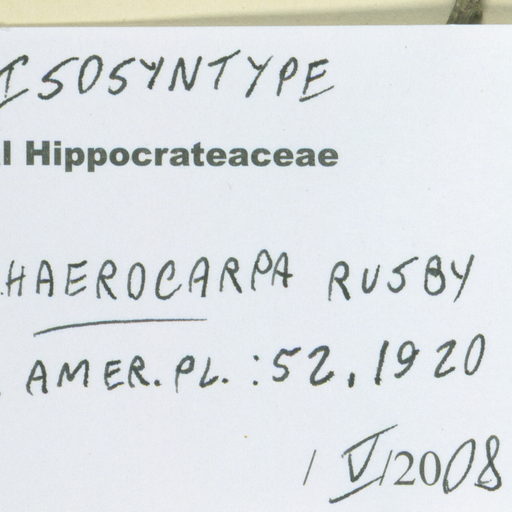 ISOSYNTYPE
l Hippocrateaceae
HAEROCARPA RUSBY
. AMER. PL. : 52, 1920
/ V/2008